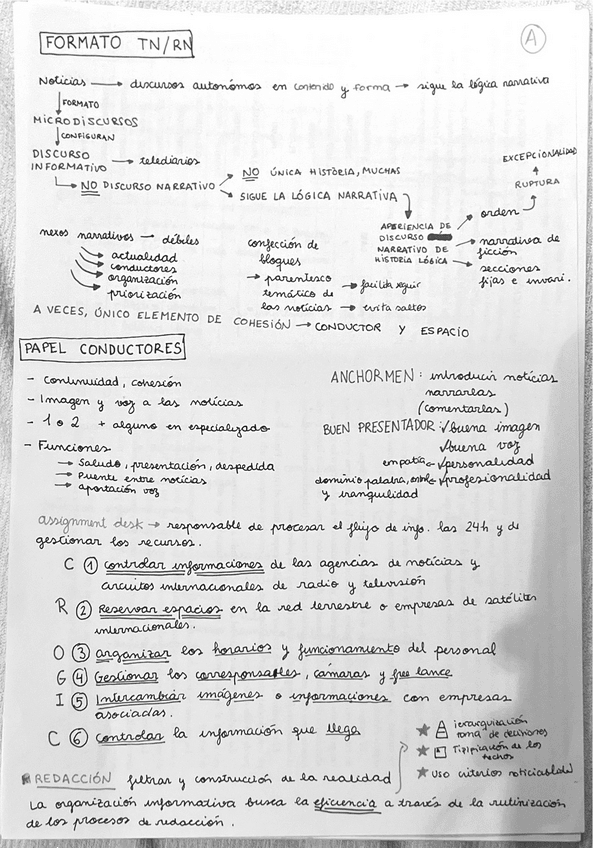 FORMATO TN/RN
A
Noticias → discursos autonómos en contenido y forma → sigue la lógica narrativa
FORMATO
MICRODISCURSOS
CONFIGURAN
DISCURSO INFORMATIVO → telediarios
NO DISCURSO NARRATIVO
NO ÚNICA HISTÒRIA, MUCHAS
SIGUE LA LÓGICA NARRATIVA
EXCEPCIONALIDAD
RUPTURA
APERIENCIA DE
DISCURSO
NARRATIVO DE
HISTORIA LÓGICA
orden
narrativa de
ficción
secciones
fijas e invari.
nexos narrativos → débiles
actualidad
conductores
organización
priorización
confección de
bloques
→ parentesco
temático de
las noticias
→ facilita seguir
→ evita saltos
A VECES, ÚNICO ELEMENTO DE COHESIÓN → CONDUCTOR Y ESPACIO
PAPEL CONDUCTORES
- Continuidad, cohesión
- Imagen y voz a las notícias
- 1 o 2 + alguno en especializado
- Funciones
→ Saludo, presentación, despedida
→ Puente entre notícias
→ aportación voz
ANCHORMEN: introducir notícias
narrarlas
(comentarlas)
BUEN PRESENTADOR: √buena imagen
√buena voz
empatía ← √personalidad
dominio palabra, ← √profesionalidad
y tranquilidad
assignment desk → responsable de procesar el flujo de info. las 24h y de
gestionar los recursos.
C ① controlar informaciones de las agencias de notícias y
circuitos internacionales de radio y televisión
R ② Reservar espacios en la red terrestre o empresas de satélites
internacionales.
O ③ organizar los horarios y funcionamiento del personal
G ④ Gestionar los corresponsables, cámaras y free lance
I ⑤ Intercambiar imágenes o informaciones con empresas
asociadas.
C ⑥ controlar la información que llega
★ jerarquización
toma de decisiones
★ Tipificación de los
hechos
★ Uso criterios noticiabilidad
REDACCIÓN filtrar y construcción de la realidad
La organización informativa busca la eficiencia a través de la rutinización
de los procesos de redacción.